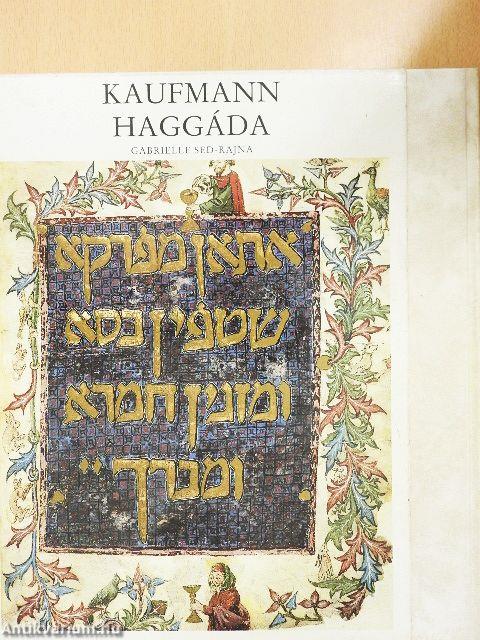 KAUFMANN
HAGGÁDA
GABRIELLE SED-RAJNA
אתאן מפרקא
שטפין כסא
ומזגין חמרא
ומברך
Antikvarium.hu